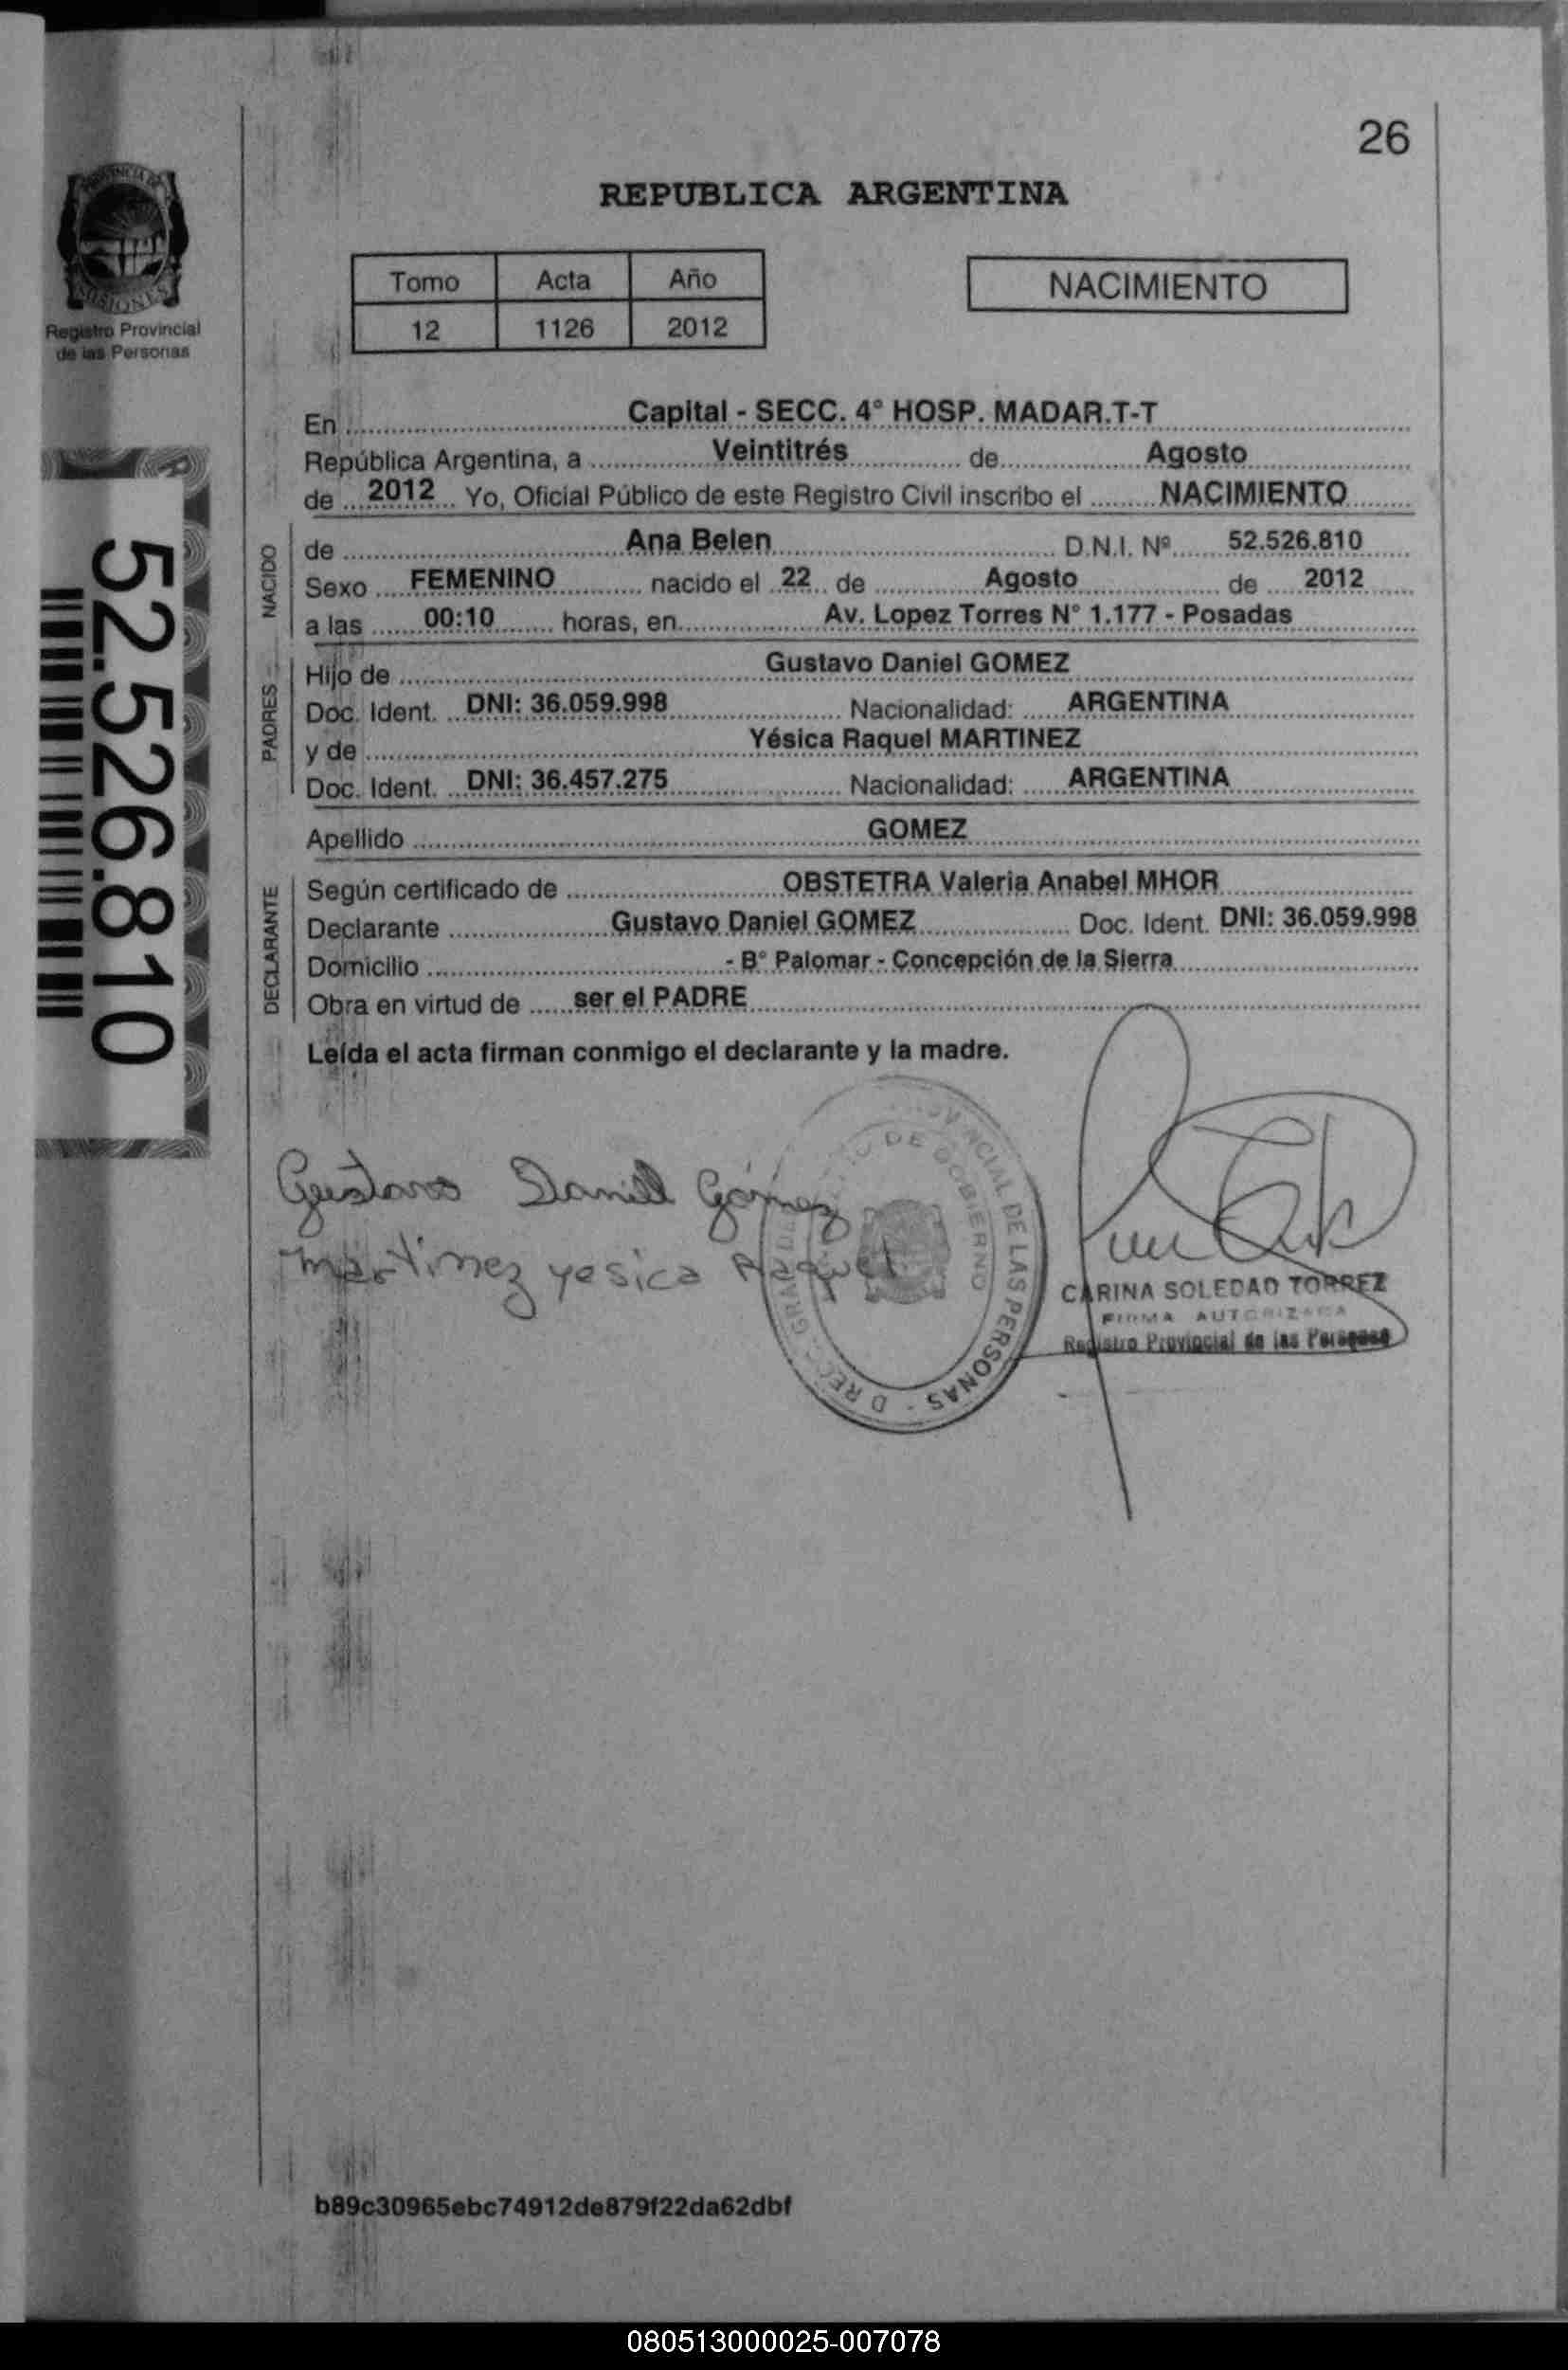 26
REPUBLICA ARGENTINA
Tomo Acta Año
12 1126 2012
NACIMIENTO
PROVINCIA DE
MISIONES
Registro Provincial
de las Personas
52.526.810
En Capital - SECC. 4° HOSP. MADAR.T-T
República Argentina, a Veintitrés de Agosto
de 2012 Yo, Oficial Público de este Registro Civil inscribo el NACIMIENTO
NACIDO
de Ana Belen D.N.I. Nº 52.526.810
Sexo FEMENINO nacido el 22 de Agosto de 2012
a las 00:10 horas, en Av. Lopez Torres N° 1.177 - Posadas
PADRES
Hijo de Gustavo Daniel GOMEZ
Doc. Ident. DNI: 36.059.998 Nacionalidad: ARGENTINA
y de Yésica Raquel MARTINEZ
Doc. Ident. DNI: 36.457.275 Nacionalidad: ARGENTINA
Apellido GOMEZ
DECLARANTE
Según certificado de OBSTETRA Valeria Anabel MHOR
Declarante Gustavo Daniel GOMEZ Doc. Ident. DNI: 36.059.998
Domicilio - B° Palomar - Concepción de la Sierra
Obra en virtud de ser el PADRE
Leída el acta firman conmigo el declarante y la madre.
Gustavo Daniel Gómez
Martinez yesica Raquel
DE GOBIERNO
DE LAS PERSONAS
CARINA SOLEDAD TORREZ
FIRMA AUTORIZADA
Registro Provincial de las Personas
b89c30965ebc74912de879f22da62dbf
080513000025-007078